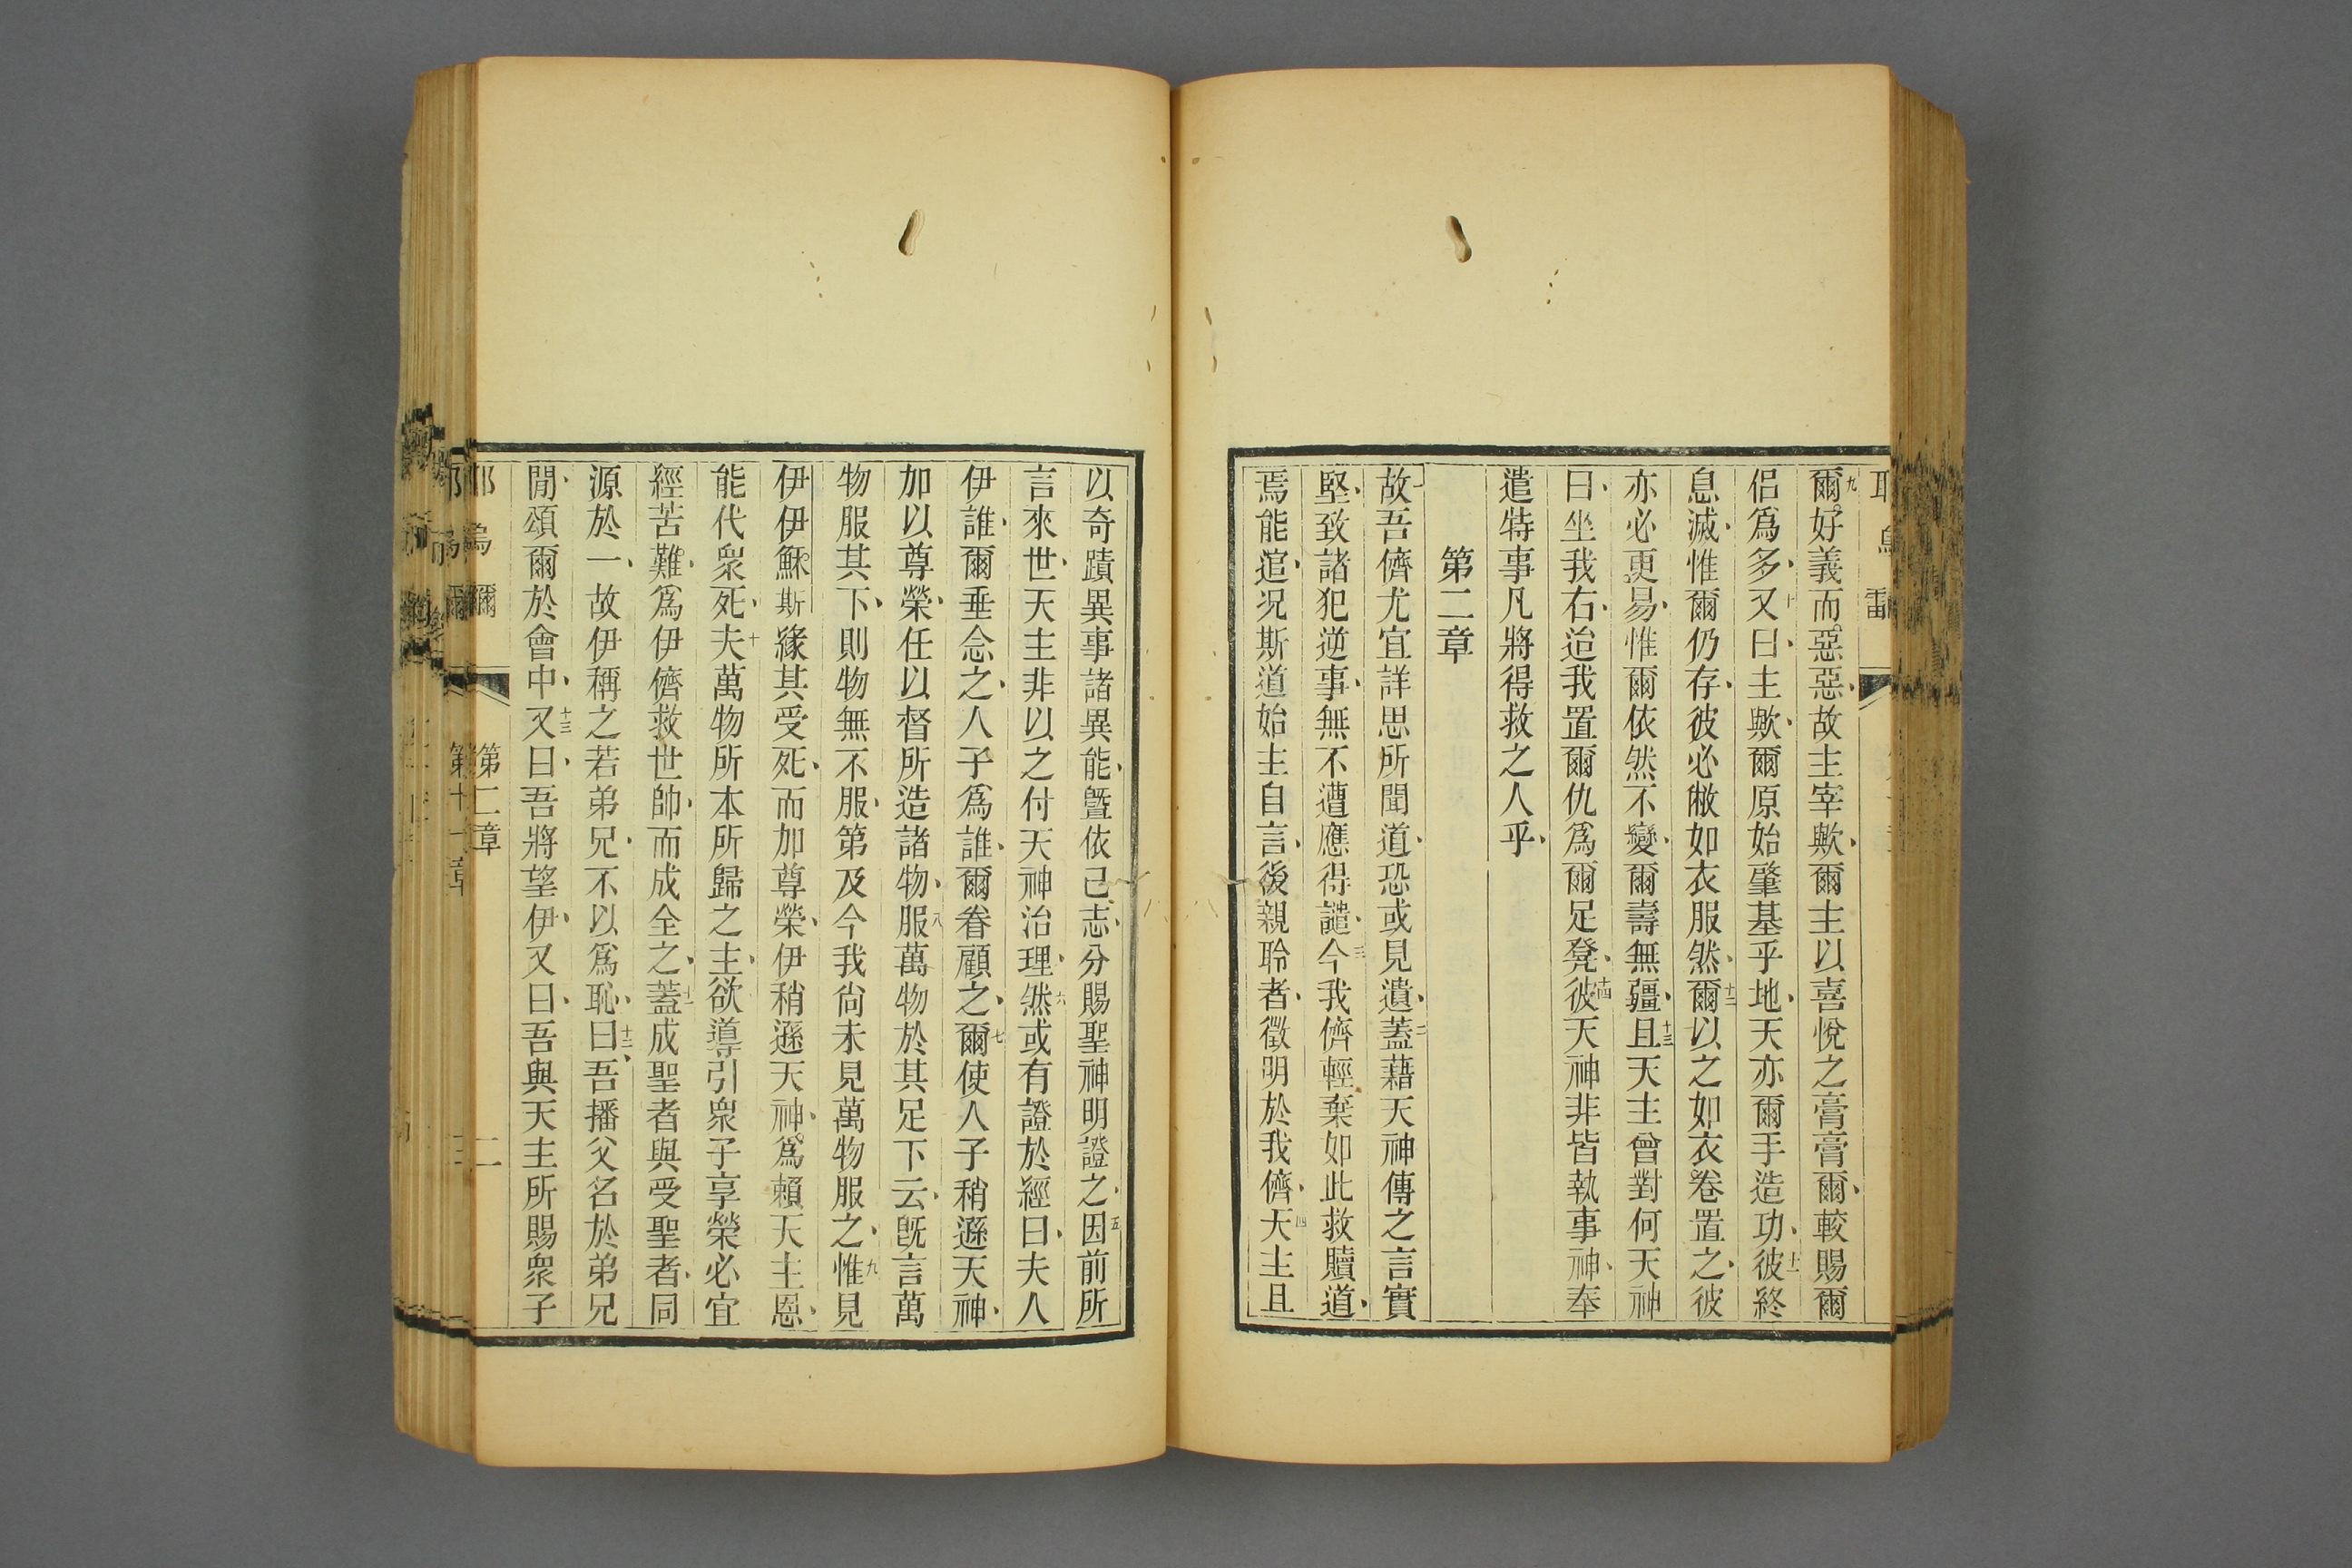 九
爾好義而惡惡故主宰歟爾主以喜悅之膏膏爾較賜爾
侶爲多十又曰主歟爾原始肇基乎地天亦爾手造功十一彼終
息滅惟爾仍存彼必敝如衣服然十二爾以之如衣卷置之彼
亦必更易惟爾依然不變爾壽無疆十三且天主曾對何天神
曰坐我右迨我置爾仇爲爾足凳十四彼天神非皆執事神奉
遣特事凡將得救之人乎
第二章
一故吾儕尤宜詳思所聞道恐或見遺二蓋藉天神傳之言實
堅致諸犯逆事無不遭應得譴三今我儕輕棄如此救贖道
焉能逭况斯道始主自言後親聆者徵明於我儕四天主且
以奇蹟異事諸異能曁依己志分賜聖神明證之五因前所
言來世天主非以之付天神治理六然或有證於經曰夫人
伊誰爾垂念之人子爲誰爾眷顧之七爾使人子稍遜天神
加以尊榮任以督所造諸物八服萬物於其足下云旣言萬
物服其下則物無不服第及今我尙未見萬物服之九惟見
伊伊穌斯緣其受死而加尊榮伊稍遜天神爲賴天主恩
能代衆死十夫萬物所本所歸之主欲導引衆子享榮必宜
經苦難爲伊儕救世帥而成全之十一蓋成聖者與受聖者同
源於一故伊稱之若弟兄不以爲恥十二曰吾播父名於弟兄
閒頌爾於會中十三又曰吾將望伊又曰吾與天主所賜衆子
第二章
二
第十一章